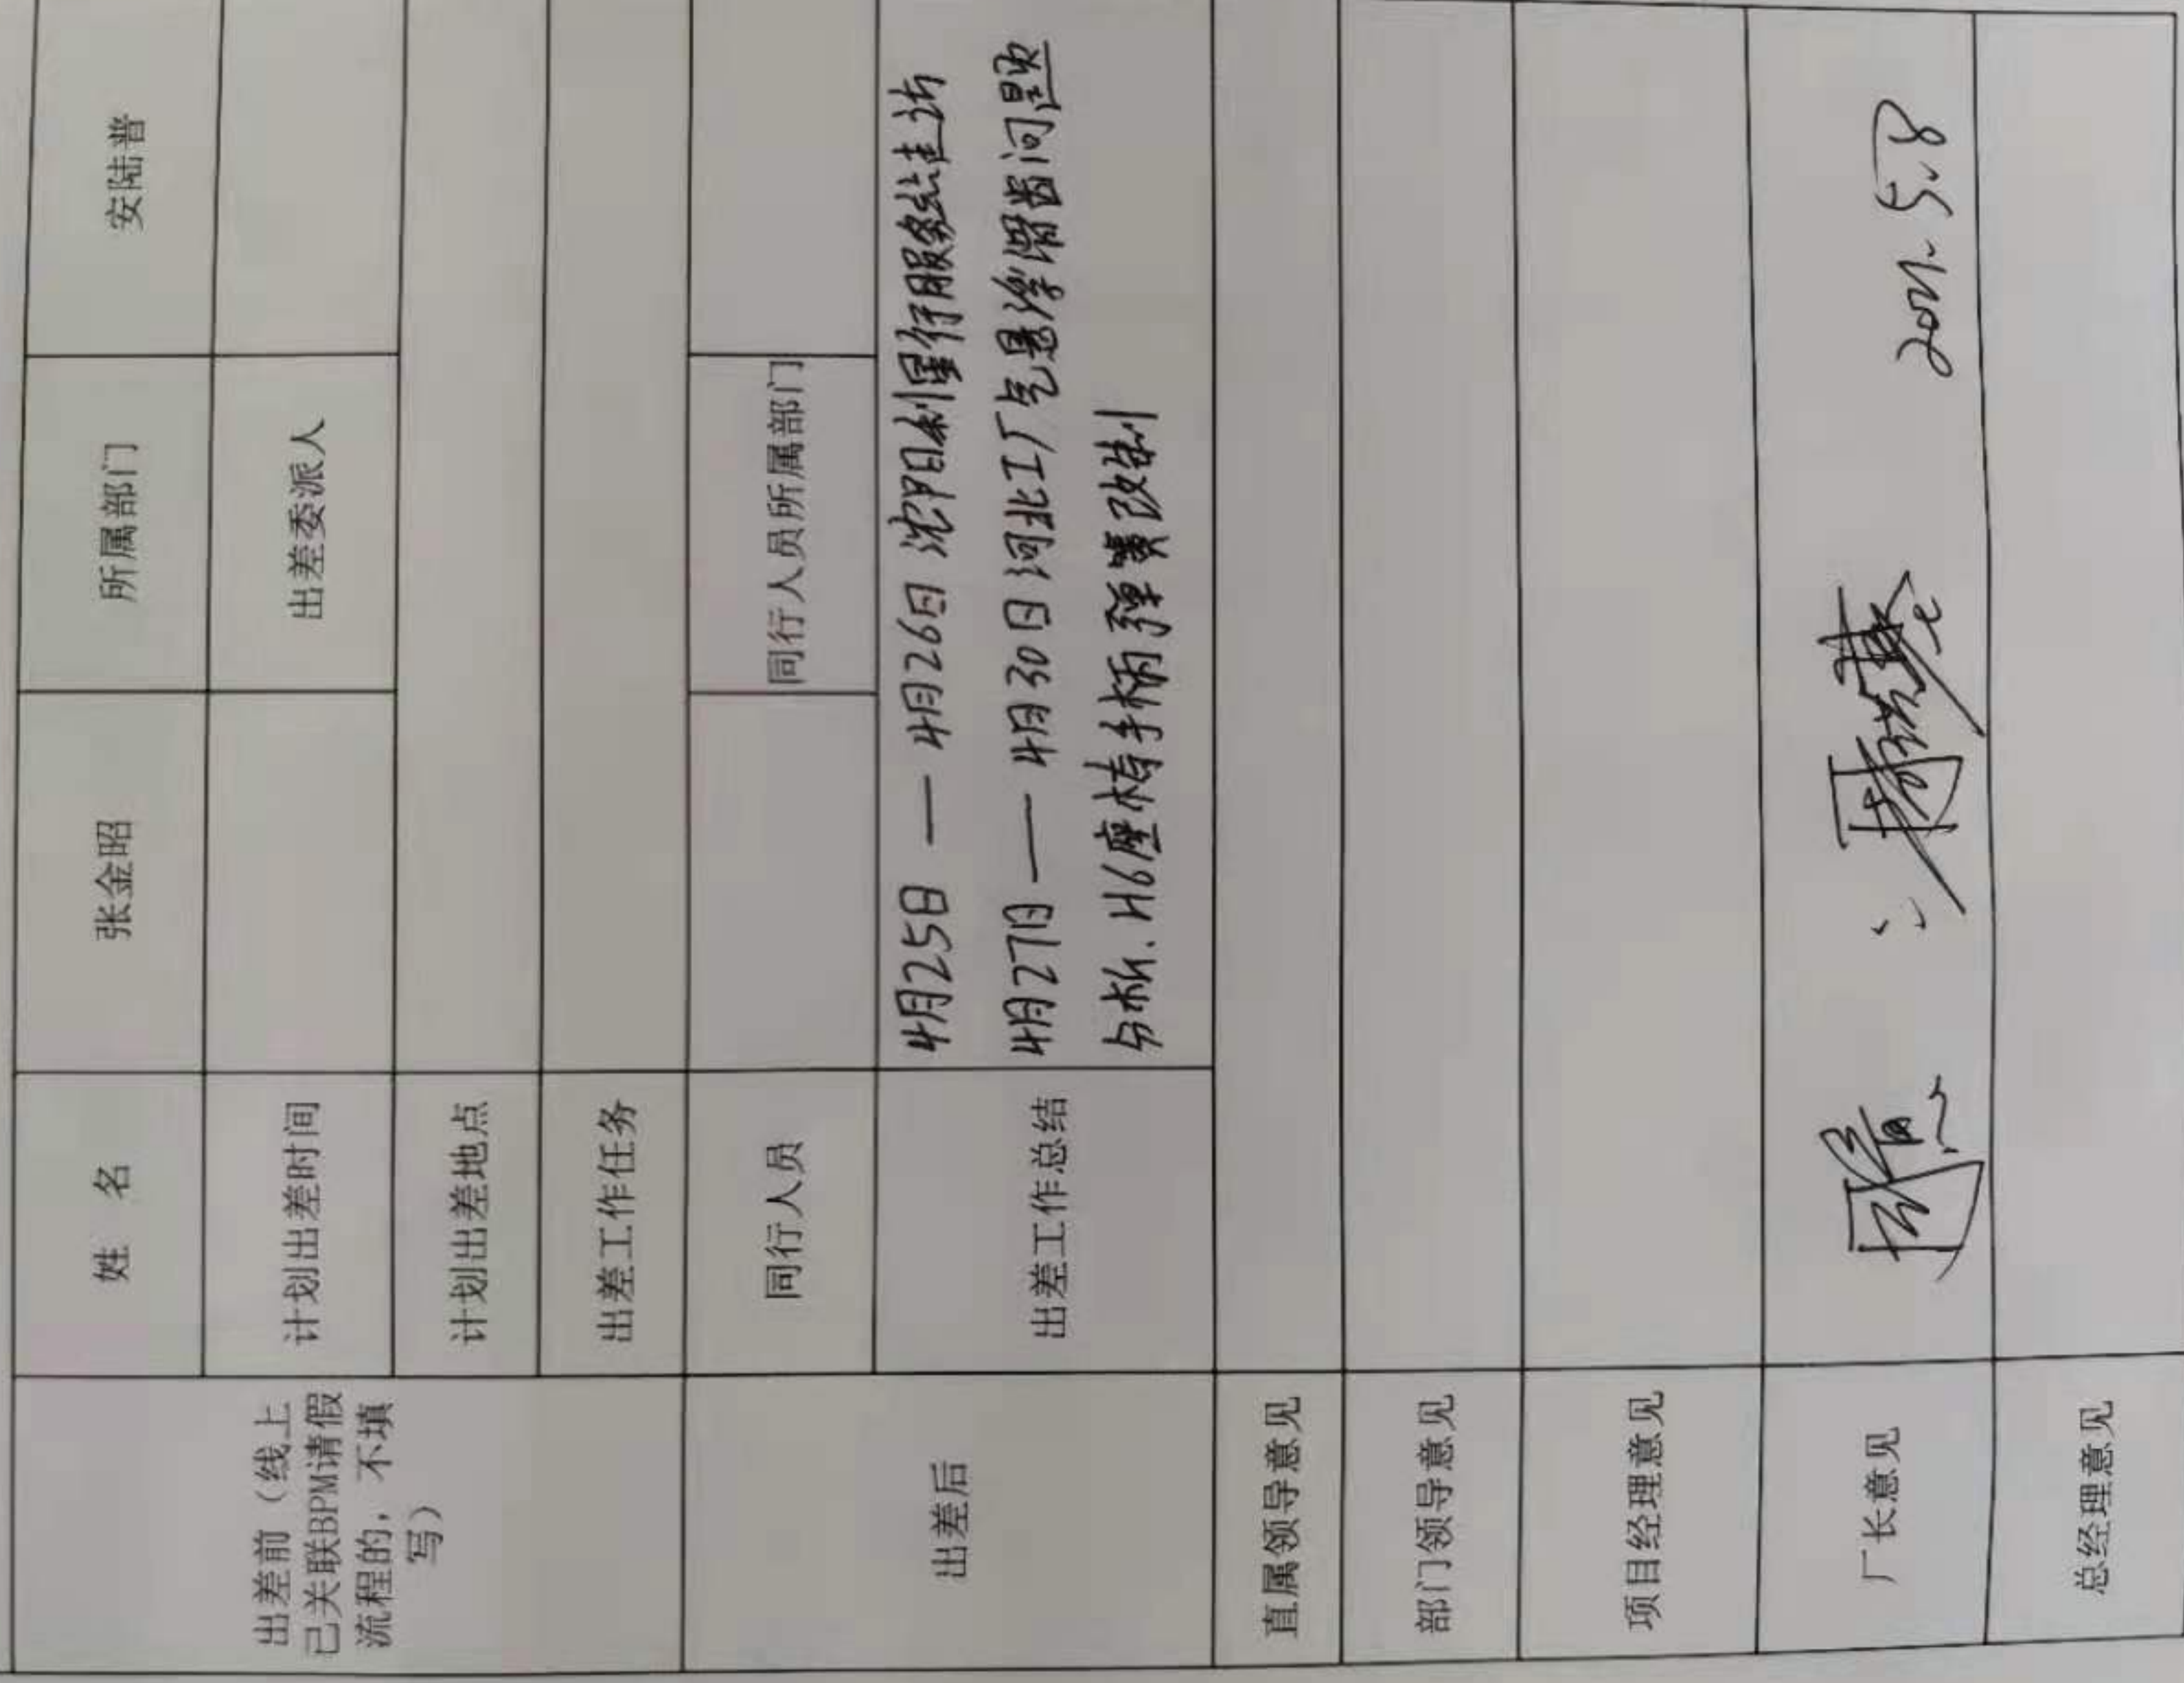 姓 名 张金昭 所属部门 安陆普
出差前（线上
已关联BPM请假
流程的，不填
写）
计划出差时间 出差委派人
计划出差地点
出差工作任务
出差后
同行人员 同行人员所属部门
出差工作总结
4月25日 — 4月26日 沈阳利星行服务站走访
4月27日 — 4月30日 河北工厂气悬浮滑齿问题
分析. H6座椅手柄弹簧改制
直属领导意见
部门领导意见
项目经理意见
厂长意见 2021.5.8
总经理意见